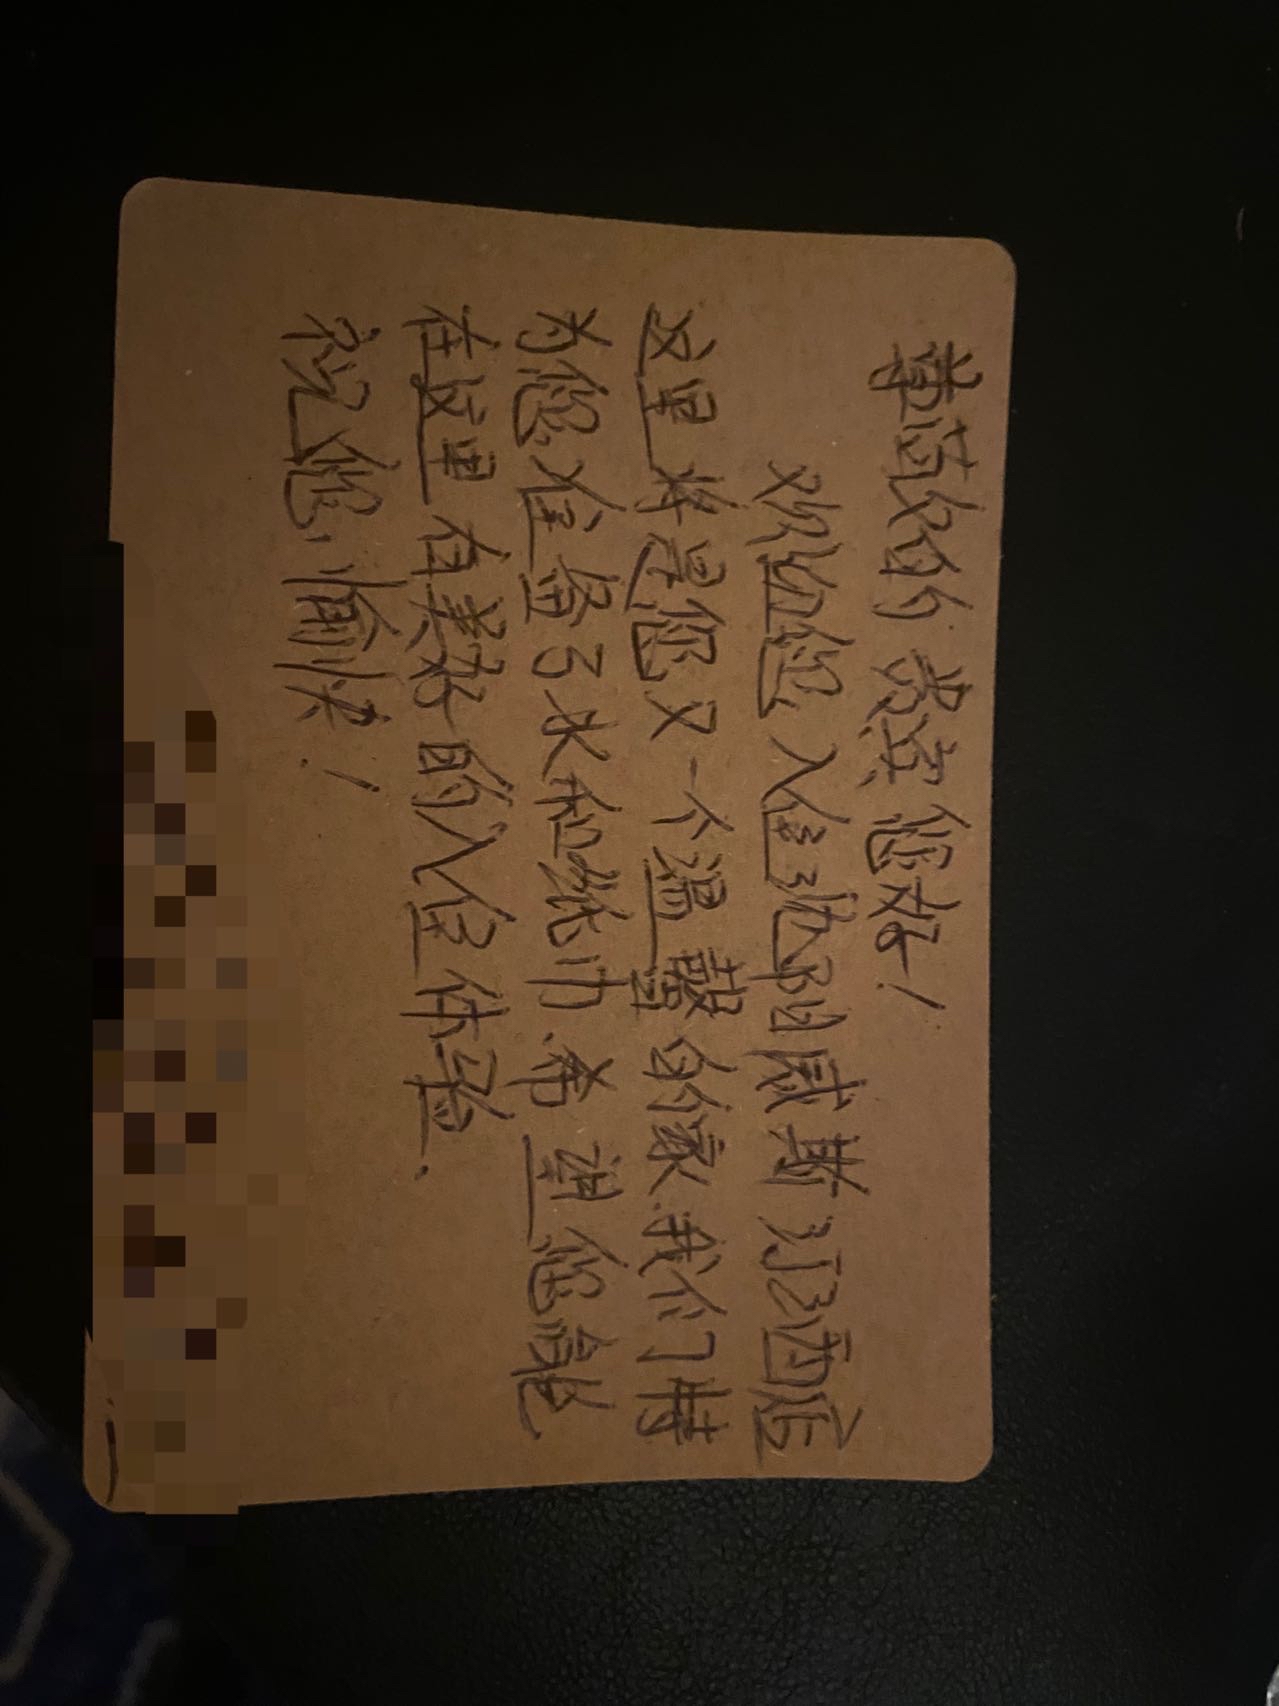 尊敬的贵宾您好!
欢迎您入住迪阿威斯汀酒店
这里将是您又一个温馨的家.我们特
为您准备了水和纸巾.希望您能
在这里有美好的入住体验、
祝您,愉快!